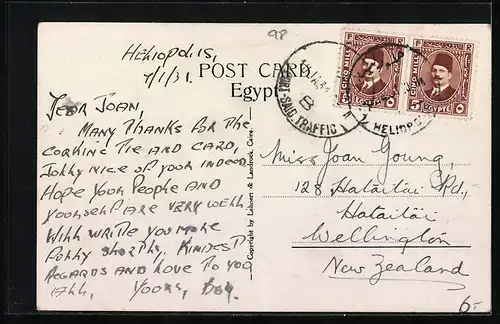 98
Heliopolis,
7/1/31.
POST CARD
Egypt
Dear Joan,
Many thanks for the
corking tie and card,
Jolly nice of your indeed
Hope your people and
yourself are very well
Will write you more
fully shortly, Kindest
regards and love to you
all, Yours,
Copyright by Lehnert & Landrock, Cairo.
PORT-SAID TRAFFIC
HELIOPOLIS
CINQ MILLS
5
EGYPTE
٥
CINQ MILLS
5
EGYPTE
٥
Miss Joan Young,
128 Hataitai Rd,
Hataitai
Wellington
New Zealand
6.-